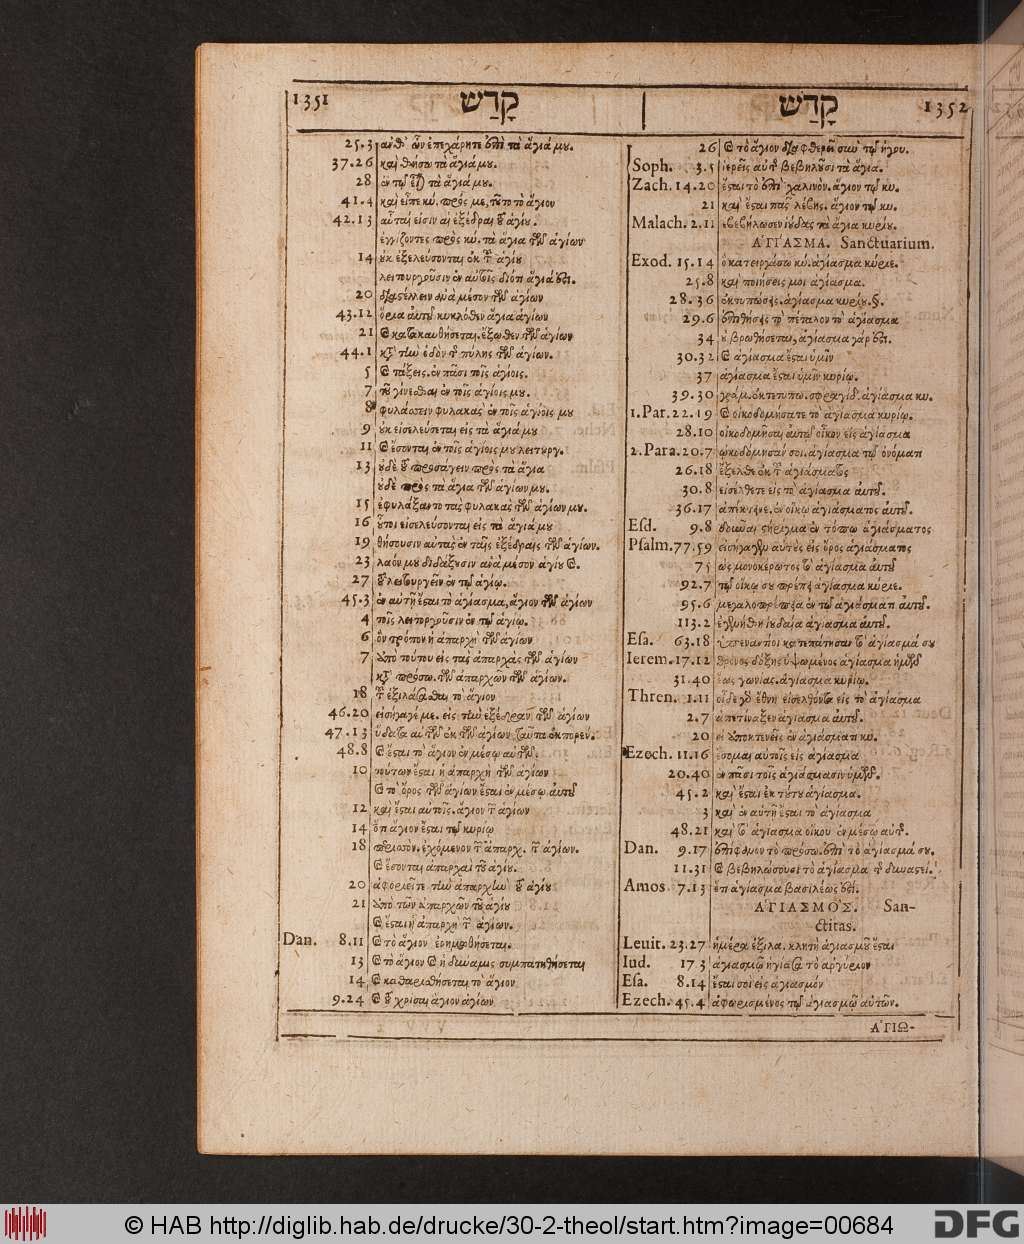 1351 קָדַשׁ
25.3 ἀνθ' ὧν ἐπεχάρητε ἐπὶ τὰ ἅγιά μου.
37.26 καὶ θήσω τὰ ἅγιά μου.
28 ἐν τῷ εἶναι τὰ ἅγιά μου.
41.4 καὶ εἶπε κύ. πρός με, τοῦτο τὸ ἅγιον
42.13 αὗταί εἰσιν αἱ ἐξέδραι τοῦ ἁγίου.
ἐγγίζοντες πρὸς κύ. τὰ ἅγια τῶν ἁγίων
14 οὐκ ἐξελεύσονται ἐκ τοῦ ἁγίου
λειτουργοῦσιν ἐν αὐτοῖς διότι ἅγιά ἐστι.
20 διαστέλλειν ἀνὰ μέσον τῶν ἁγίων
43.12 ὅρια αὐτοῦ κυκλόθεν ἅγια ἁγίων
21 καὶ κατακαυθήσεται. ἔξωθεν τῶν ἁγίων
44.1 κατὰ τὴν ὁδὸν τῆς πύλης τῶν ἁγίων.
5 καὶ τάξεις. ἐν πᾶσι τοῖς ἁγίοις.
7 τοῦ γίνεσθαι ἐν τοῖς ἁγίοις μου.
8 φυλάσσειν φυλακὰς ἐν τοῖς ἁγίοις μου
9 οὐκ εἰσελεύσεται εἰς τὰ ἅγιά μου
11 καὶ ἔσονται ἐν τοῖς ἁγίοις μου λειτουργ.
13 οὐδὲ τοῦ προσάγειν πρὸς τὰ ἅγια
οὐδὲ πρὸς τὰ ἅγια τῶν ἁγίων μου.
15 ἐφυλάξαντο τὰς φυλακὰς τῶν ἁγίων μου.
16 οὗτοι εἰσελεύσονται εἰς τὰ ἅγιά μου
19 θήσουσιν αὐτὰς ἐν ταῖς ἐξέδραις τῶν ἁγίων.
23 λαόν μου διδάξουσιν ἀνὰ μέσον ἁγίου καὶ.
27 τοῦ λειτουργεῖν ἐν τῷ ἁγίῳ.
45.3 ἐν αὐτῇ ἔσται τὸ ἁγίασμα, ἅγιον τῶν ἁγίων
4 τοῖς λειτουργοῦσιν ἐν τῷ ἁγίῳ.
6 ὃν τρόπον ἡ ἀπαρχὴ τῶν ἁγίων
7 ἀπὸ τούτου εἰς τὰς ἀπαρχὰς τῶν ἁγίων
κατὰ πρόσω. τῶν ἀπαρχῶν τῶν ἁγίων.
18 τοῦ ἐξιλάσασθαι τὸ ἅγιον
46.20 εἰσήγαγέ με. εἰς τὴν ἐξέδραν τῶν ἁγίων
47.13 ὕδατα αὐτῶν ἐκ τῶν ἁγίων ταῦτα ἐκπορεύ.
48.8 καὶ ἔσται τὸ ἅγιον ἐν μέσῳ αὐτῶν.
10 τούτων ἔσται ἡ ἀπαρχὴ τῶν ἁγίων
καὶ τὸ ὄρος τῶν ἁγίων ἔσται ἐν μέσῳ αὐτοῦ
12 καὶ ἔσται αὐτοῖς. ἅγιον τῶν ἁγίων
14 ὅτι ἅγιον ἔσται τῷ κυρίῳ
18 περισσὸν. ἐχόμενον τῶν ἀπαρχ. τῶν ἁγίων.
καὶ ἔσονται ἀπαρχαὶ τοῦ ἁγίου.
20 ἀφοριεῖτε τὴν ἀπαρχὴν τοῦ ἁγίου
21 ἀπὸ τῶν ἀπαρχῶν τοῦ ἁγίου
καὶ ἔσται ἡ ἀπαρχὴ τῶν ἁγίων.
Dan. 8.11 καὶ τὸ ἅγιον ἐρημωθήσεται.
13 καὶ τὸ ἅγιον καὶ ἡ δύναμις συμπατηθήσεται
14 καὶ καθαρισθήσεται τὸ ἅγιον
9.24 καὶ τοῦ χρίσαι ἅγιον ἁγίων
קָדַשׁ 1352
26 καὶ τὸ ἅγιον διαφθερεῖ σὺν τῷ ἡγου.
Soph. 3.5 ἱερεῖς αὐτῆς βεβηλοῦσι τὰ ἅγια.
Zach. 14.20 ἔσται τὸ ἐπὶ χαλινὸν. ἅγιον τῷ κυ.
21 καὶ ἔσται πᾶς λέβης. ἅγιον τῷ κυ.
Malach. 2.11 ἐβεβήλωσεν ἰούδας τὰ ἅγια κυρίου.
ἉΓΙΑΣΜΑ. Sanctuarium.
Exod. 15.14 ὃ κατειργάσω κύ. ἁγίασμα κύριε.
25.8 καὶ ποιήσεις μοι ἁγίασμα.
28.36 ἐκτυπώσεις. ἁγίασμα κυρίου. §.
29.6 ἐπιθήσεις τὸ πέταλον τὸ ἁγίασμα
34 οὐ βρωθήσεται, ἁγίασμα γάρ ἐστι.
30.32 καὶ ἁγίασμα ἔσται ὑμῖν
37 ἁγίασμα ἔσται ὑμῖν κυρίῳ.
39.30 γράμ. ἐκτετυπω. σφραγίδ. ἁγίασμα κυ.
1.Par. 22.19 καὶ οἰκοδομήσατε τὸ ἁγίασμα κυρίῳ.
28.10 οἰκοδομῆσαι αὐτῷ οἶκον εἰς ἁγίασμα
2.Para. 20.7 ᾠκοδόμησάν σοι. ἁγίασμα τῷ ὀνόματι
26.18 ἔξελθε ἐκ τοῦ ἁγιάσματος
30.8 εἰσέλθετε εἰς τὸ ἁγίασμα αὐτοῦ.
36.17 ἀπέκτεινε. ἐν οἴκῳ ἁγιάσματος αὐτοῦ.
Esd. 9.8 δοῦναι στήριγμα ἐν τόπῳ ἁγιάσματος
Psalm. 77.59 εἰσήγαγεν αὐτοὺς εἰς ὄρος ἁγιάσματος
75 ὡς μονοκέρωτος τὸ ἁγίασμα αὐτοῦ
92.7 τῷ οἴκῳ σου πρέπει ἁγίασμα κύριε.
95.6 μεγαλοπρέπεια ἐν τῷ ἁγιάσματι αὐτοῦ.
113.2 ἐγενήθη ἰουδαία ἁγίασμα αὐτοῦ.
Esa. 63.18 ὑπεναντίοι κατεπάτησαν τὸ ἁγίασμά σου
Ierem. 17.12 θρόνος δόξης ὑψωμένος ἁγίασμα ἡμῶν
31.40 ἕως γωνίας. ἁγίασμα κυρίῳ.
Thren. 1.11 οἶδε γὰρ ἔθνη εἰσελθόντα εἰς τὸ ἁγίασμα
2.7 ἀπετίναξεν ἁγίασμα αὐτοῦ.
20 εἰ ἀποκτενεῖς ἐν ἁγιάσματι κυ.
Ezech. 11.16 ἔσομαι αὐτοῖς εἰς ἁγίασμα
20.40 ἐν πᾶσι τοῖς ἁγιάσμασιν ὑμῶν.
45.2 καὶ ἔσται ἐκ τούτου ἁγίασμα.
3 καὶ ἐν αὐτῇ ἔσται τὸ ἁγίασμα
48.21 καὶ τὸ ἁγίασμα οἴκου ἐν μέσῳ αὐτῆς.
Dan. 9.17 ἐπίφανον τὸ πρόσω. ἐπὶ τὸ ἁγίασμά σου.
11.31 καὶ βεβηλώσουσι τὸ ἁγίασμα τῆς δυναστεί.
Amos 7.13 ὅτι ἁγίασμα βασιλέως ἐστί.
ἉΓΙΑΣΜΌΣ. San-
ctitas.
Leuit. 23.27 ἡμέρα ἐξιλα. κλητὴ ἁγιασμοῦ ἔσται
Iud. 17 3 ἁγιασμῷ ἡγίασα τὸ ἀργύριον
Esa. 8.14 ἔσται σοι εἰς ἁγιασμόν
Ezech. 45.4 ἀφωρισμένος τῷ ἁγιασμῷ αὐτῶν.
ἉΓΙΩ-
© HAB http://diglib.hab.de/drucke/30-2-theol/start.htm?image=00684
DFG